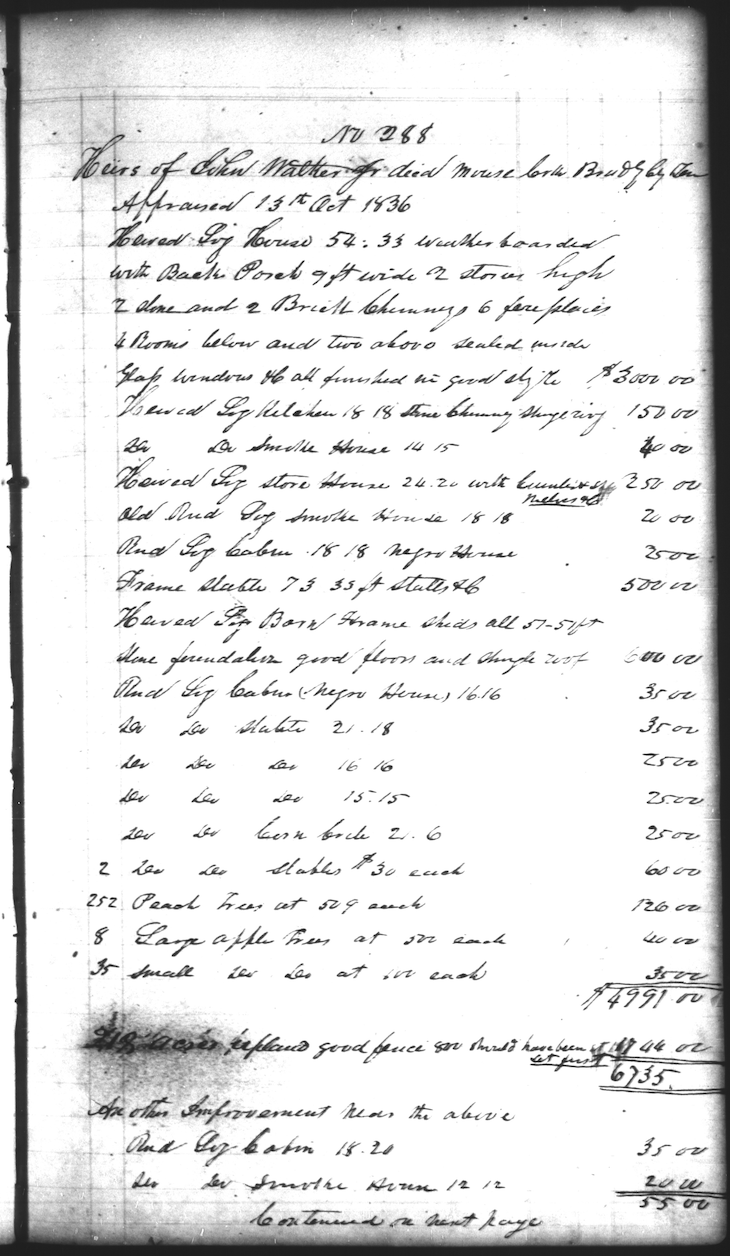 No 288
Heirs of John Walker Jr died Mouse Crk Brad'y Cy Ten
Appraised 13th Oct 1836
Hewed Log House 54.33 weatherboarded
with Back Porch 9 ft wide 2 stories high
2 stone and 2 Brick Chimneys 6 fere places
4 Rooms below and two above sealed inside
Glass windows &C all finished in good style $3000 00
Hewed Log Kitchen 18 18 stone Chimney 150 00
Do Do Smoke House 14 15 40 00
Hewed Log store House 24.20 with Counter & 250 00
Old Rnd Log Smoke House 18 18 20 00
Rnd Log Cabin 18 18 Negro House 25 00
Frame Stable 73 35 ft Stalls &C 500 00
Hewed Log Barn Frame sheds all 51-51 ft
stone foundation good floors and shingle roof 600 00
Rnd Log Cabin (Negro House) 16.16 35 00
Do Do Stable 21.18 35 00
Do Do Do 16 16 25 00
Do Do Do 15.15 25 00
Do Do Corn Crib 21.6 25 00
2 Do Do Stables $30 each 60 00
252 Peach Trees at 50¢ each 126 00
8 Large apple Trees at 500 each 40 00
35 small Do Do at 100 each 35 00
$4991.00
acres upland good fence 800 should have been 1744 00
set first
6735.
Another Improvement near the above
Rnd Log Cabin 18.20 35 00
Do Do Smoke House 12 12 20 00
55 00
Contenued on next page